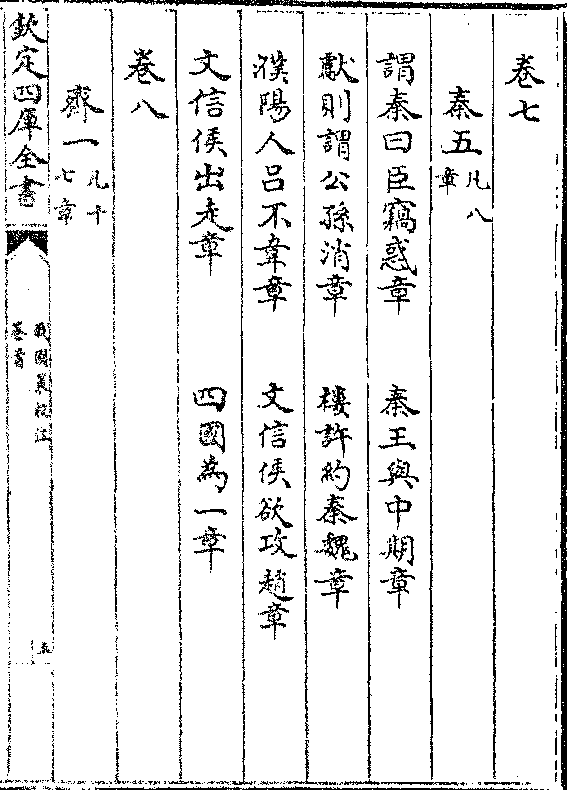 卷七
秦五凡八章
謂秦曰臣竊惑章 秦王與中期章
獻則謂公孫消章 樓許約秦魏章
濮陽人吕不韋章 文信侯欲攻趙章
文信侯出走章 四國為一章
卷八
齊一凡十七章
欽定四庫全書
戰國策校注
卷首
五